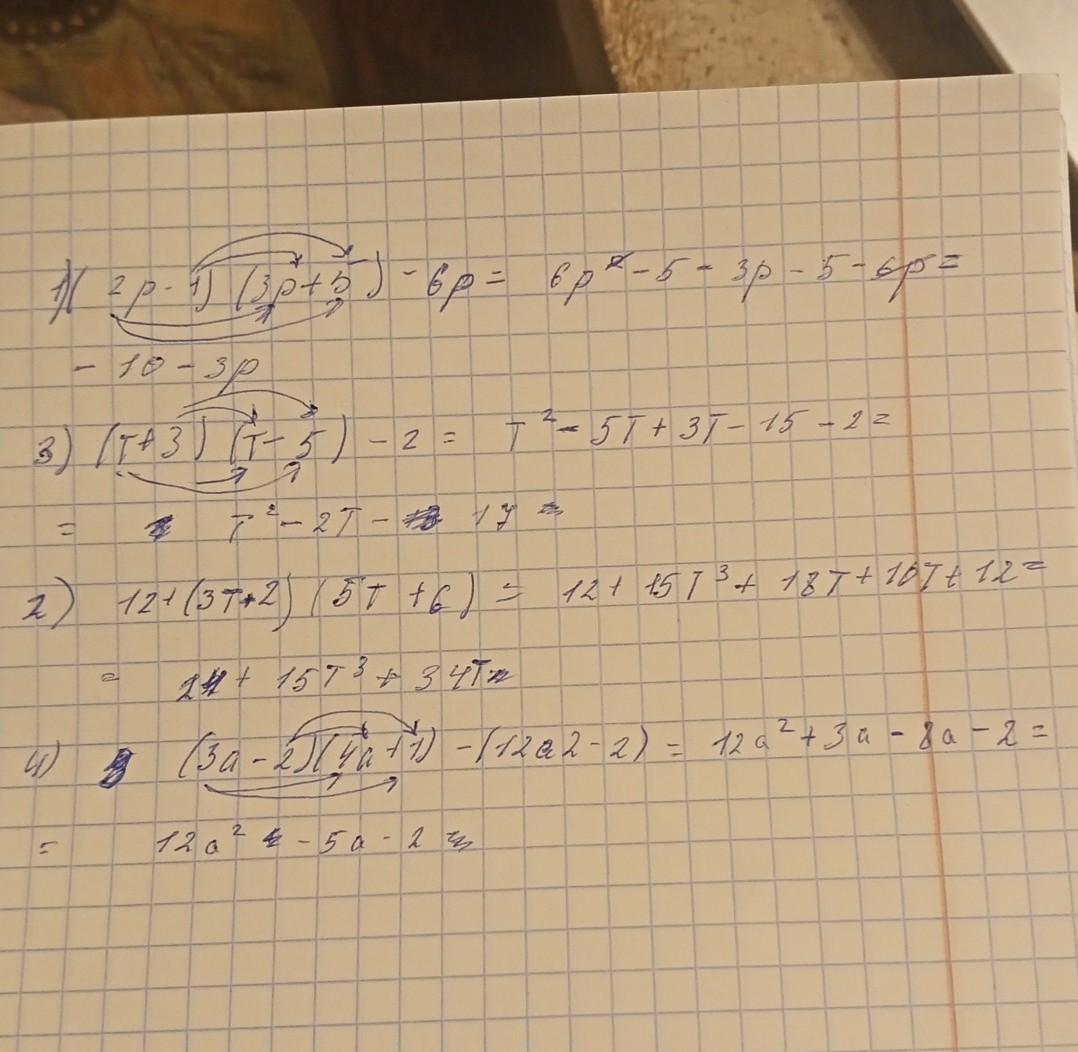 1) (2p-1) (3p+5) - 6p = 6p² - 5 - 3p - 5 - 6p =
- 10 - 3p
3) (T+3) (T-5) - 2 = T² - 5T + 3T - 15 - 2 =
= T² - 2T - 17 =
2) 12+(3T+2) (5T+6) = 12 + 15T³ + 18T + 10T + 12 =
= 24 + 15T³ + 34T
4) (3a-2)(4a+1) - (12a2-2) = 12a² + 3a - 8a - 2 =
= 12a² - 5a - 2